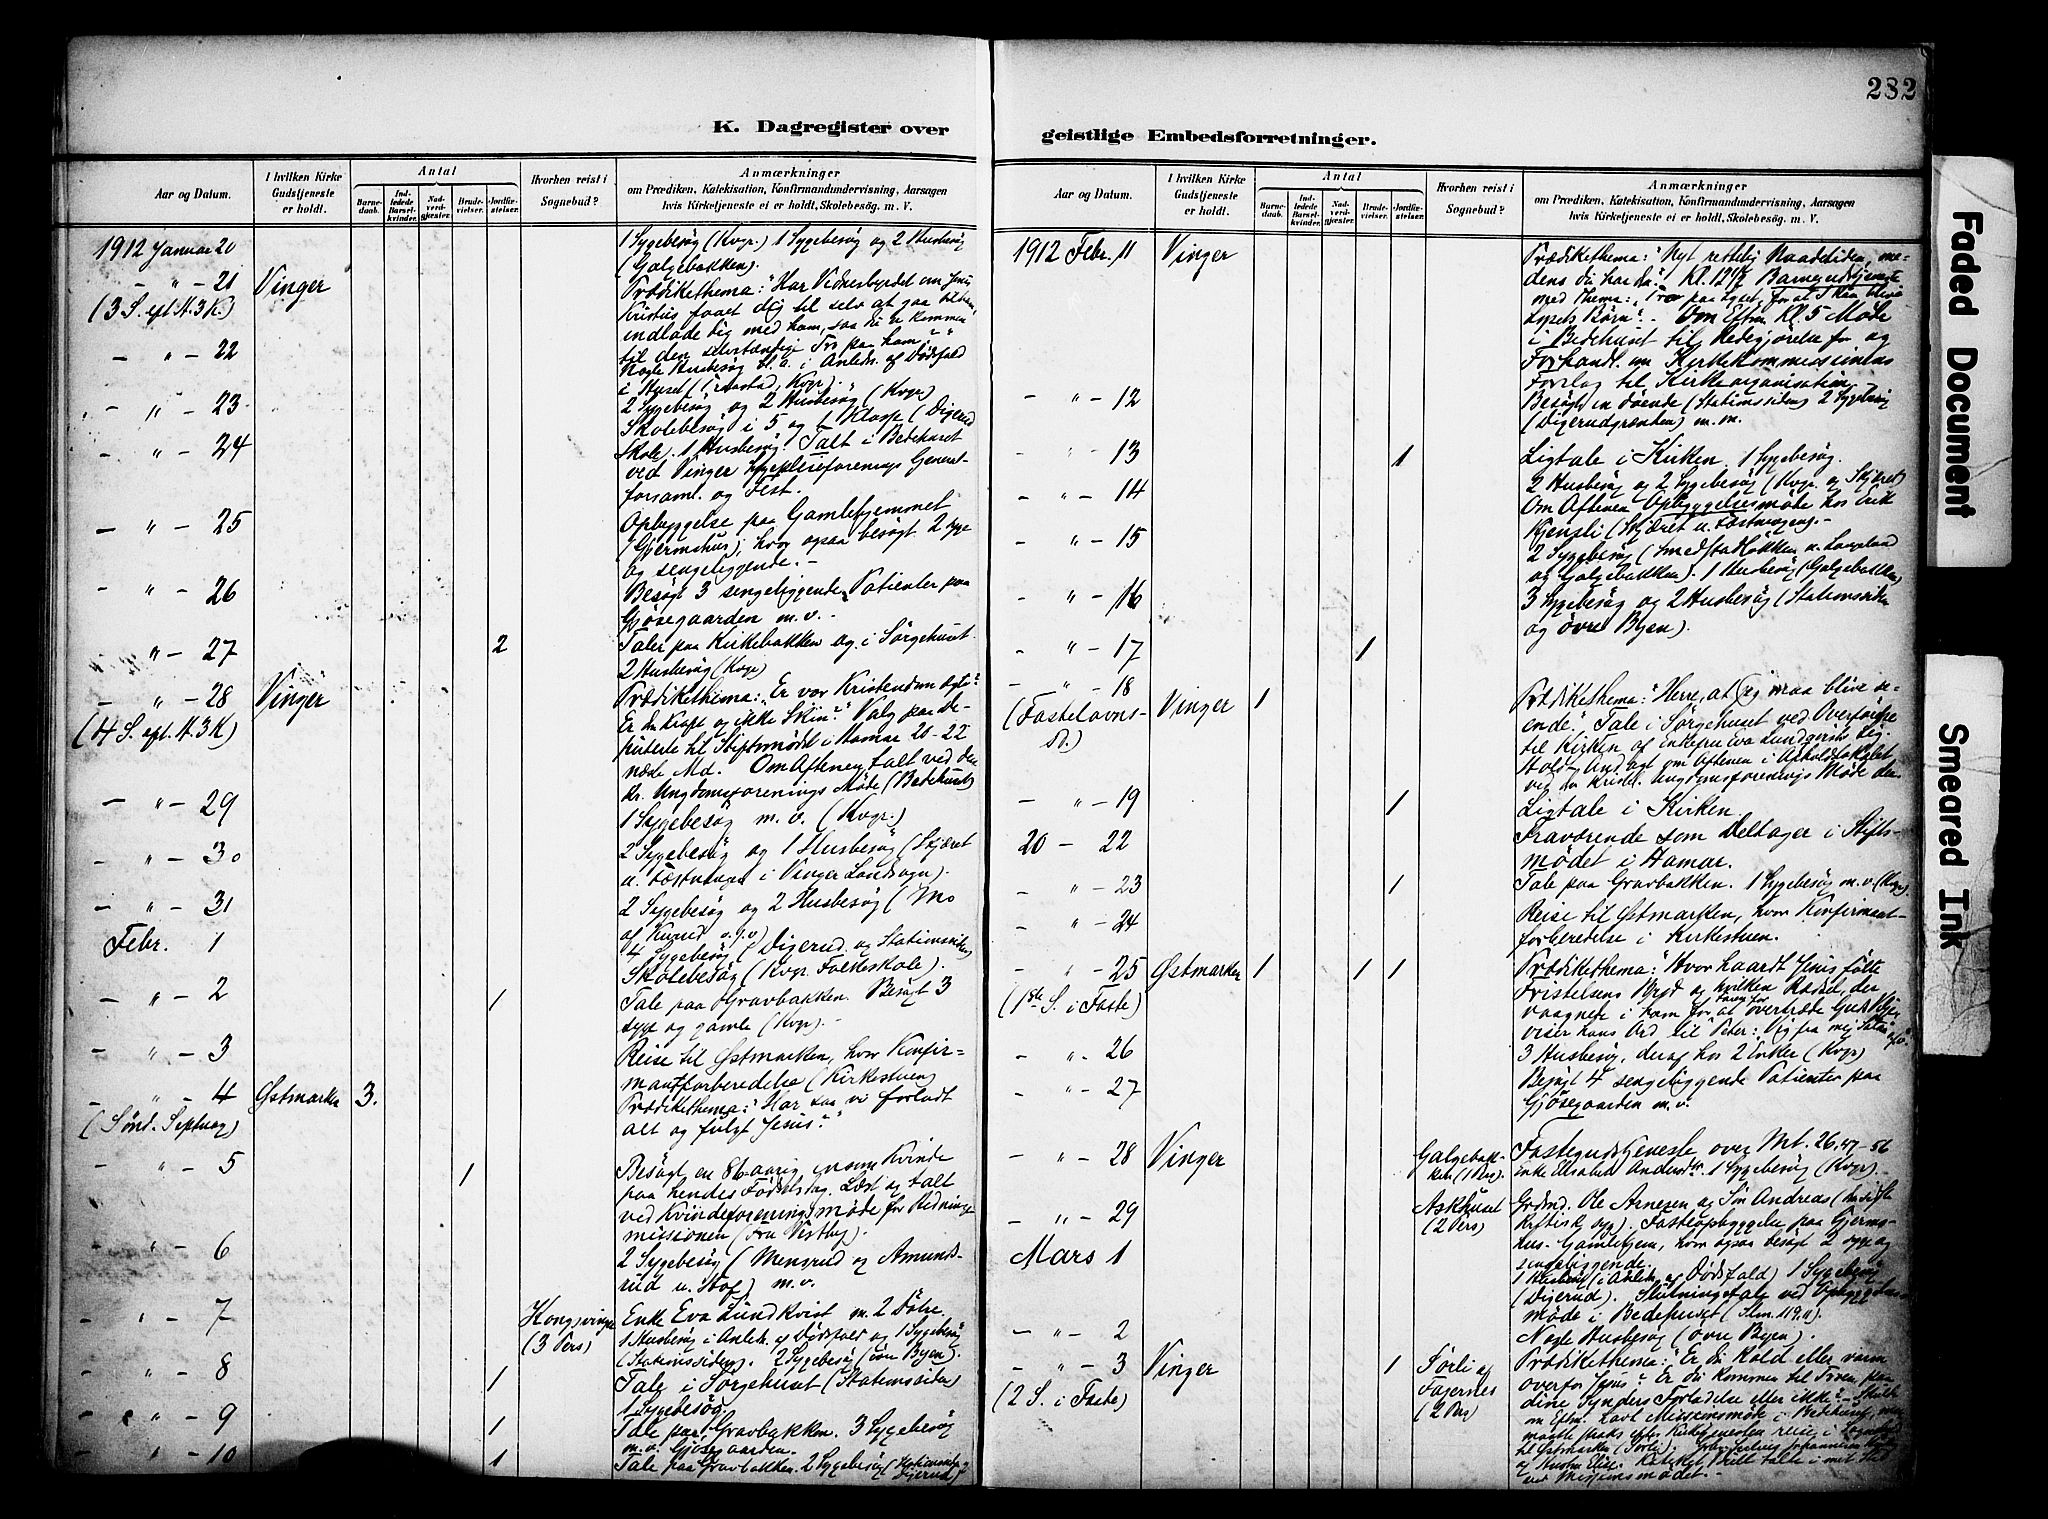 282
K. Dagregister over
geistlige Embedsforretninger.
Aar og Datum.
I hvilken Kirke
Gudstjeneste
er holdt.
Antal
Barne-
daab.
Ind-
ledede
Barsel-
kvinder.
Nad-
verd-
gjester.
Brude-
vielser.
Jordfæ-
stelser.
Hvorhen reist i
Sognebud?
Anmærkninger
om Prædiken, Katekisation, Konfirmandundervisning, Aarsagen
hvis Kirketjeneste ei er holdt, Skolebesøg. m. V.
1912 Januar 20
1 Sygebesøg (Kvgr.) 1 Sygebesøg og 2 Husbesøg
(Galgebakken).
— " — 21 Vinger
(3 S. eft. H. 3 K.)
Prædikethema: "Har Vidnesbyrdet om Jesus
Kristus faaet dig til selv at gaa til ham,
indlade dig med ham, saa du er kommen
til den selvstændige Tro paa ham"
— " — 22
Nogle Husbesøg bl. a. i Anledn. af Dødsfald
i Huset (Kvgr.).
— " — 23
2 Sygebesøg og 2 Husbesøg (Kvgr)
— " — 24
Skolebesøg i 5 og 1 Klasse (Digerud
Skole. 1 Husbesøg. Talt i Bedehuset
ved Vinger Sygepleieforenings General-
forsaml. og Fest.
— " — 25
Opbyggelse paa Gamlehjemmet
(Gjermshus), hvor ogsaa besøgt 2 syge
og sengeliggende. —
— " — 26
Besøgt 3 sengeliggende Patienter paa
Gjøsegaarden m. v. —
— " — 27 2
Taler paa Kirkebakken og i Sørgehuset.
2 Husbesøg (Kvgr)
— " — 28 Vinger
(4 S. eft. H. 3 K)
Prædikethema: "Er vor Kristendom ægte?
Er den Kraft og ikke Skin?" Valg paa De-
puterte til Stiftsmødet i Hamar 20-22
næste Md. Om Aftenen talt ved den
kr. Ungdomsforenings Møde (Bedehuset)
— " — 29
1 Sygebesøg m. v. (Kvgr.)
— " — 30
2 Sygebesøg og 1 Husbesøg (Skjæret
u. Fæstningen i Vinger Landsogn).
— " — 31
2 Sygebesøg og 2 Husbesøg (Mo
af Kurud o. s. v)
Febr. 1
4 Sygebesøg (Digerud og Stationssiden)
Skolebesøg (Kvgr. Folkeskole).
— " — 2 1
Tale paa Gravbakken. Besøgt 3
syge og gamle (Kvgr). —
— " — 3
Reise til Østmarken, hvor Konfir-
mantforberedelse (Kirkestuen)
— " — 4 Østmarken 3.
(Sønd. Septuag)
Prædikethema: "Har saa vi forladt
alt og fulgt Jesus?"
— " — 5 1
Besøgt en 86-aarig Kvinde
paa hendes Fødselsdag. Læst og talt
ved Kvindeforeningsmøde for Hedninge-
missionen (Fru Vestby).
— " — 6
2 Sygebesøg (Mensrud og Amunds-
rud u. Hof) m. v.
— " — 7
Kongsvinger
(3 Pers)
Enke Eva Lundkvist m. 2 Døtre.
1 Husbesøg i Anledn. af Dødsfald og 1 Sygebesøg
(Stationssiden). 2 Sygebesøg (øvre Byen).
— " — 8 1
Tale i Sørgehuset (Stationssiden)
1 Sygebesøg.
— " — 9 1
Tale paa Gravbakken. 3 Sygebesøg
m. v. Gjøsegaarden.
— " — 10 1
Tale paa Gravbakken. 2 Sygebesøg (Stationssiden og
Digerud)
Aar og Datum.
I hvilken Kirke
Gudstjeneste
er holdt.
Antal
Barne-
daab.
Ind-
ledede
Barsel-
kvinder.
Nad-
verd-
gjester.
Brude-
vielser.
Jordfæ-
stelser.
Hvorhen reist i
Sognebud?
Anmærkninger
om Prædiken, Katekisation, Konfirmandundervisning, Aarsagen
hvis Kirketjeneste ei er holdt, Skolebesøg. m. V.
1912 Febr. 11 Vinger
Prædikethema: "Nyt rettelig Naadetiden, me-
dens du har den". Kl. 12½ Barnegudstjeneste
med Thema: "Tro paa Lyset, for at I kan blive
Lysets Børn". — Om Eftm. Kl. 5 Møde
i Bedehuset til Redegjørelse for og
Forhandl. om Kirkekommissionens
Forslag til Kirkeorganisation.
— " — 12
Besøgt en døende (Stationssiden) 2 Sygebesøg
(Digerudgrænden) m. m.
— " — 13 1
Ligtale i Kirken. 1 Sygebesøg.
— " — 14
2 Husbesøg og 2 Sygebesøg (Kvgr. og Skjæret)
Om Aftenen Opbyggelsesmøde hos Erik
Kjensli (Skjæret u. Fæstningen). —
— " — 15
2 Sygebesøg (Smedstadbakken u. Langeland
og Galgebakken). 1 Husbesøg (Galgebakken)
— " — 16
3 Sygebesøg og 2 Husbesøg (Stationssiden
og øvre Byen).
— " — 17 1
— " — 18 Vinger 1
(Fastelavns-
S.)
Prædikethema: "Herre, at jeg maa blive se-
ende". Tale i Sørgehuset ved Overførelse
til Kirken af Enkefru Eva Lundqvists Lig.
Holdt Andagt om Aftenen i Afholdslokalet
ved den kristel. Ungdomsforenings Møde der.
— " — 19 1
Ligtale i Kirken.
20 — 22
Fraværende som Deltager i Stifts-
mødet i Hamar.
— " — 23 1
Tale paa Gravbakken. 1 Sygebesøg m. v. (Kvgr).
— " — 24
Reise til Østmarken, hvor Konfirmant-
forberedelse i Kirkestuen.
— " — 25 Østmarken 1 1 1
(1ste S. i Faste)
Prædikethema: "Hvor haardt Jesus følte
Fristelsens Brod og hvilken Rædsel, der
vaagnede i ham for at overtræde Guds Vilje,
viser hans Ord til Peter: Vig fra mig Satan" o.s.v.
— " — 26
3 Husbesøg, deraf hos 2 Enker (Kvgr)
— " — 27
Besøgt 4 sengeliggende Patienter paa
Gjøsegaarden m. v.
— " — 28 Vinger
Galgebak-
ken (1 Pers)
Fastegudstjeneste over Mt. 26.47-56
Enke Elisabet Andersdtr. 1 Sygebesøg (Kvgr).
— " — 29
Askhuset
(2 Pers)
Grdmd. Ole Arnesen og Søn Andreas (den sidste
kræftisk syg). Fasteopbyggelse paa Gjerms-
hus Gamlehjem, hvor ogsaa besøgt 2 syge og
sengeliggende.
Mars 1
1 Husbesøg (i Anledn. af Dødsfald) 1 Sygebesøg
(Digerud). Slutningstale ved Opbyggelses-
møde i Bedehuset (Slm. 119.11).
— " — 2
Nogle Husbesøg (øvre Byen).
— " — 3 Vinger 1
(2 S. i Faste)
Sørli og
Fajernes
(2 Pers)
Prædikethema: "Er du kold eller varm
overfor Jesus? Er du kommen til Troen paa
dine Synders Forladelse eller ikke?" — Skulde
om Eftm. havt Missionsmøde i Bedehuset, men
maatte straks efter Kirketjenesten reise i Sognebud
til Østmarken (Sørli).
og Hustru Elise. talte i mit Sted
ved Missionsmødet. —
Faded Document
Smeared Ink